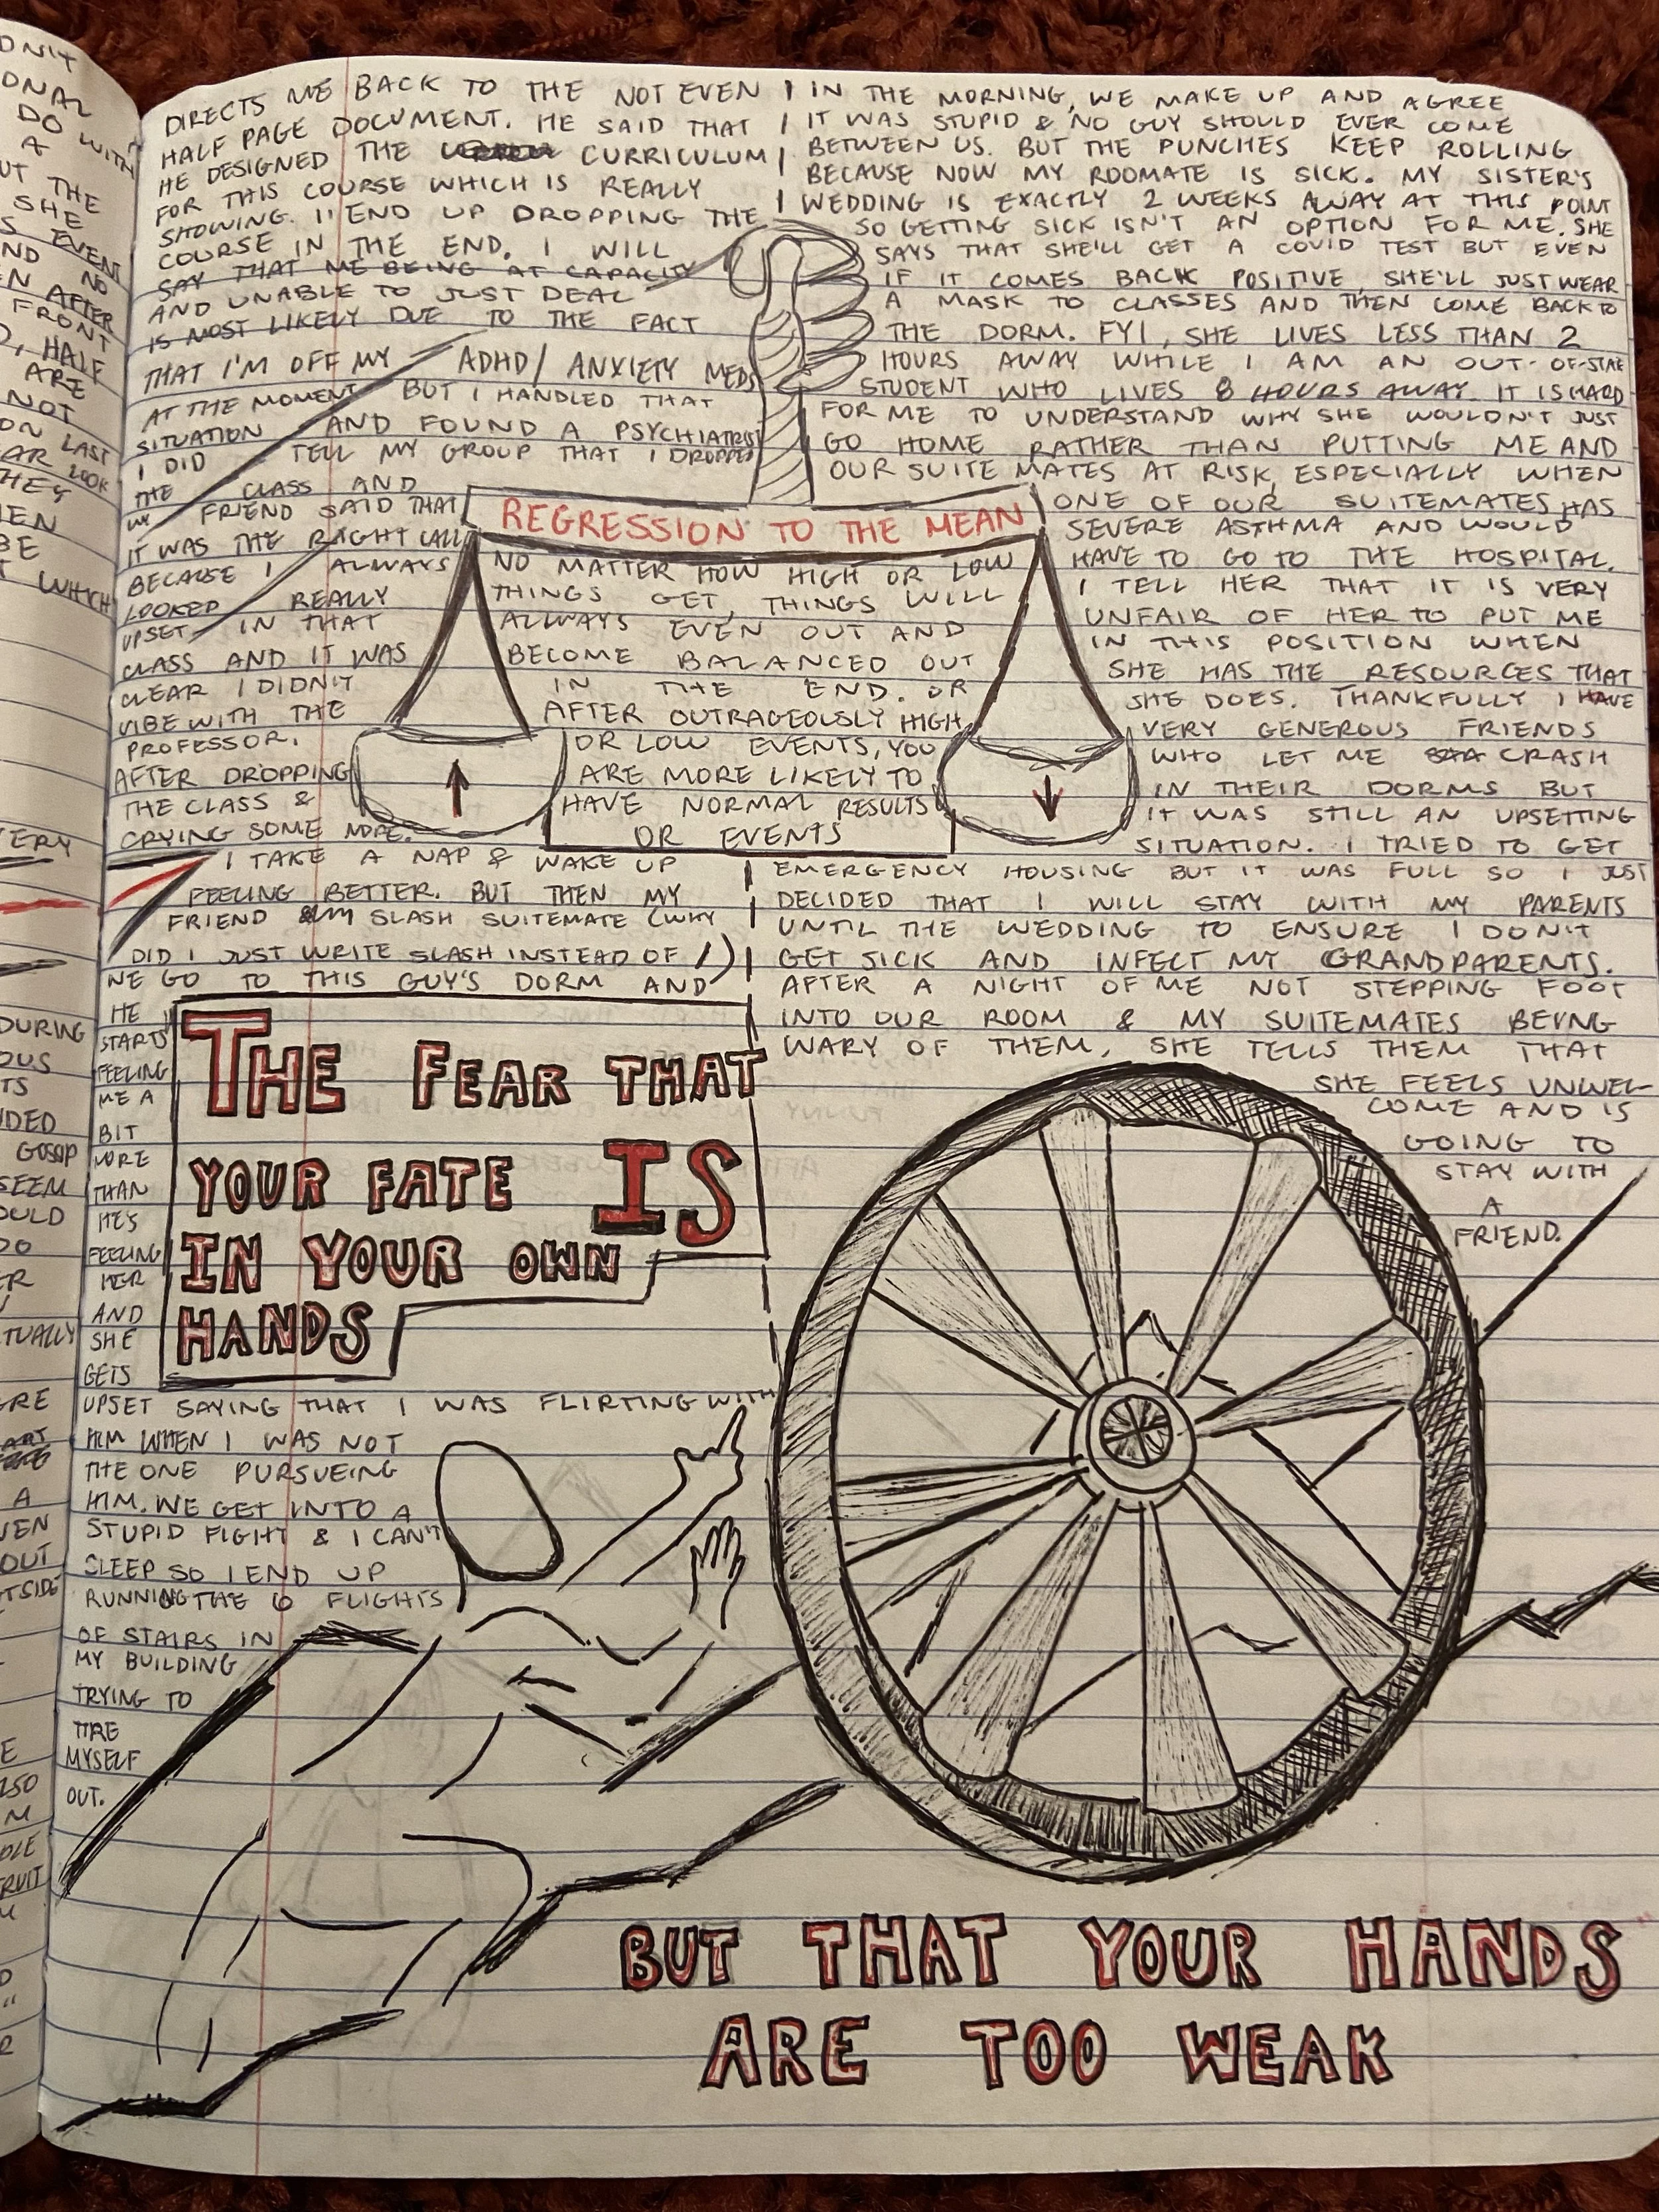 DIRECTS ME BACK TO THE NOT EVEN
HALF PAGE DOCUMENT. HE SAID THAT
HE DESIGNED THE CURRICULUM
FOR THIS COURSE WHICH IS REALLY
SHOWING. I END UP DROPPING THE
COURSE IN THE END. I WILL
SAY THAT ME BEING AT CAPACITY
AND UNABLE TO JUST DEAL
IS MOST LIKELY DUE TO THE FACT
THAT I'M OFF MY ADHD/ANXIETY MEDS
AT THE MOMENT BUT I HANDLED THAT
SITUATION AND FOUND A PSYCHIATRIST
I DID TELL MY GROUP THAT I DROPPED
THE CLASS AND
MY FRIEND SAID THAT
IT WAS THE RIGHT CALL
BECAUSE I ALWAYS
LOOKED REALLY
UPSET IN THAT
CLASS AND IT WAS
CLEAR I DIDN'T
VIBE WITH THE
PROFESSOR.
AFTER DROPPING
THE CLASS &
CRYING SOME MORE.
I TAKE A NAP & WAKE UP
FEELING BETTER. BUT THEN MY
FRIEND SLASH SUITEMATE (WHY
DID I JUST WRITE SLASH INSTEAD OF /)
WE GO TO THIS GUY'S DORM AND
HE
STARTS
FEELING
ME A
BIT
MORE
THAN
HE'S
FEELING
HER
AND
SHE
GETS
UPSET SAYING THAT I WAS FLIRTING WITH
HIM WHEN I WAS NOT
THE ONE PURSUEING
HIM. WE GET INTO A
STUPID FIGHT & I CAN'T
SLEEP SO I END UP
RUNNING THE 6 FLIGHTS
OF STAIRS IN
MY BUILDING
TRYING TO
TIRE
MYSELF
OUT.
REGRESSION TO THE MEAN
NO MATTER HOW HIGH OR LOW
THINGS GET, THINGS WILL
ALWAYS EVEN OUT AND
BECOME BALANCED OUT
IN THE END. OR
AFTER OUTRAGEOUSLY HIGH
OR LOW EVENTS, YOU
ARE MORE LIKELY TO
HAVE NORMAL RESULTS
OR EVENTS
IN THE MORNING, WE MAKE UP AND AGREE
IT WAS STUPID & NO GUY SHOULD EVER COME
BETWEEN US. BUT THE PUNCHES KEEP ROLLING
BECAUSE NOW MY ROOMATE IS SICK. MY SISTER'S
WEDDING IS EXACTLY 2 WEEKS AWAY AT THIS POINT
SO GETTING SICK ISN'T AN OPTION FOR ME. SHE
SAYS THAT SHE'LL GET A COVID TEST BUT EVEN
IF IT COMES BACK POSITIVE, SHE'LL JUST WEAR
A MASK TO CLASSES AND THEN COME BACK TO
THE DORM. FYI, SHE LIVES LESS THAN 2
HOURS AWAY WHILE I AM AN OUT-OF-STATE
STUDENT WHO LIVES 8 HOURS AWAY. IT IS HARD
FOR ME TO UNDERSTAND WHY SHE WOULDN'T JUST
GO HOME RATHER THAN PUTTING ME AND
OUR SUITEMATES AT RISK, ESPECIALLY WHEN
ONE OF OUR SUITEMATES HAS
SEVERE ASTHMA AND WOULD
HAVE TO GO TO THE HOSPITAL.
I TELL HER THAT IT IS VERY
UNFAIR OF HER TO PUT ME
IN THIS POSITION WHEN
SHE HAS THE RESOURCES THAT
SHE DOES. THANKFULLY I HAVE
VERY GENEROUS FRIENDS
WHO LET ME CRASH
IN THEIR DORMS BUT
IT WAS STILL AN UPSETTING
SITUATION. I TRIED TO GET
EMERGENCY HOUSING BUT IT WAS FULL SO I JUST
DECIDED THAT I WILL STAY WITH MY PARENTS
UNTIL THE WEDDING TO ENSURE I DON'T
GET SICK AND INFECT MY GRANDPARENTS.
AFTER A NIGHT OF ME NOT STEPPING FOOT
INTO OUR ROOM & MY SUITEMATES BEING
WARY OF THEM, SHE TELLS THEM THAT
SHE FEELS UNWEL-
COME AND IS
GOING TO
STAY WITH
A
FRIEND.
THE FEAR THAT
YOUR FATE IS
IN YOUR OWN
HANDS
BUT THAT YOUR HANDS
ARE TOO WEAK